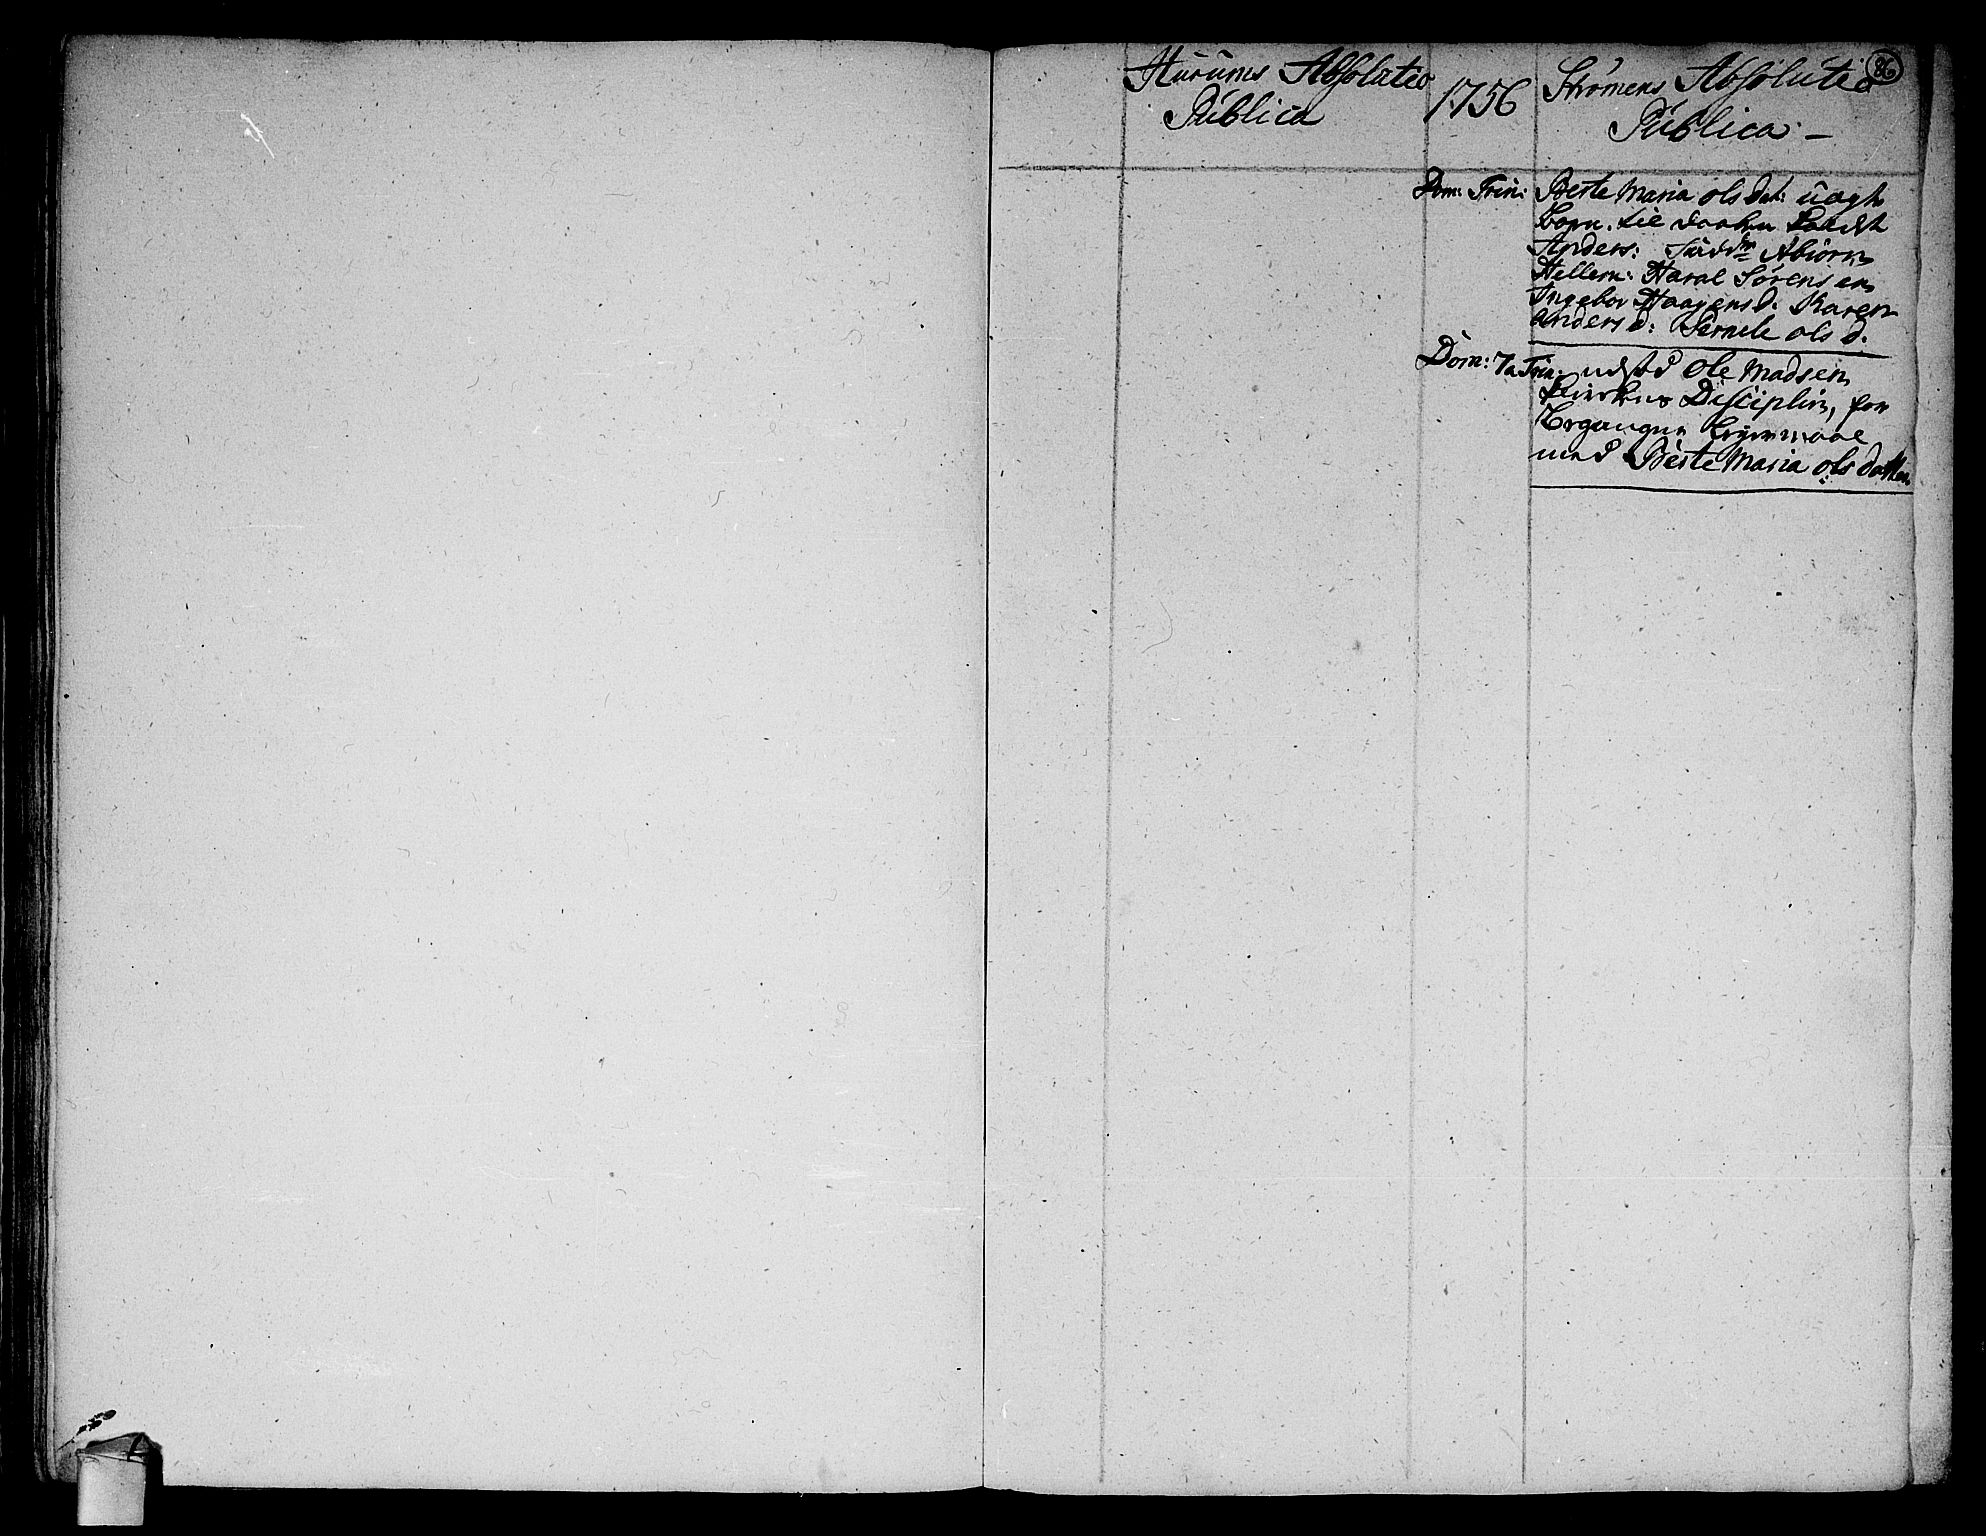 86
Hurums Absolutio
Publica
1756
Strømens Absolutio
Publica. –
Dom: Trin: Berte Maria olsdat: uægte
Barn. Lie
Anders: Abiørn
Hellern: Haral Sørensen
Ingebor Haagensd: Karen
Andersd: Pernele olsd.
Dom: 7a Trin: udstod Ole Madsen
Kirkens Disciplin, for
begangen leyermaal
med Berte Maria olsdatter.